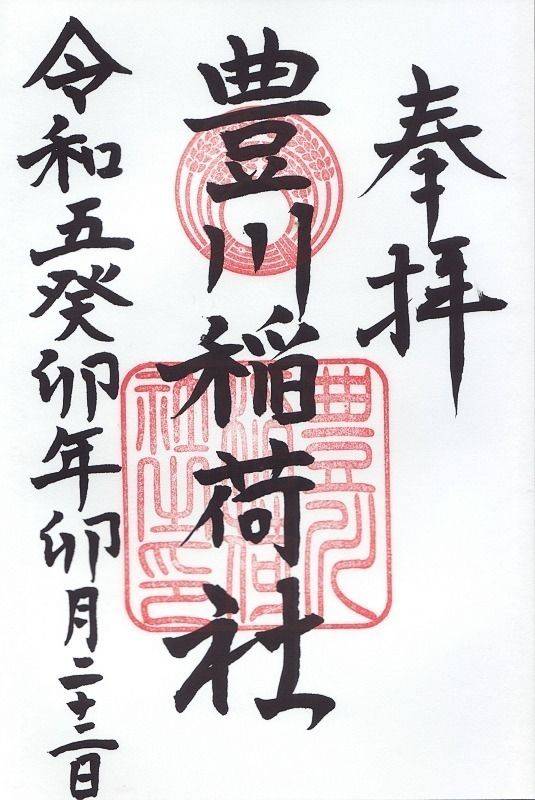 奉拝
豊川稲荷社
豊川稲荷社之印
令和五癸卯年卯月二十二日